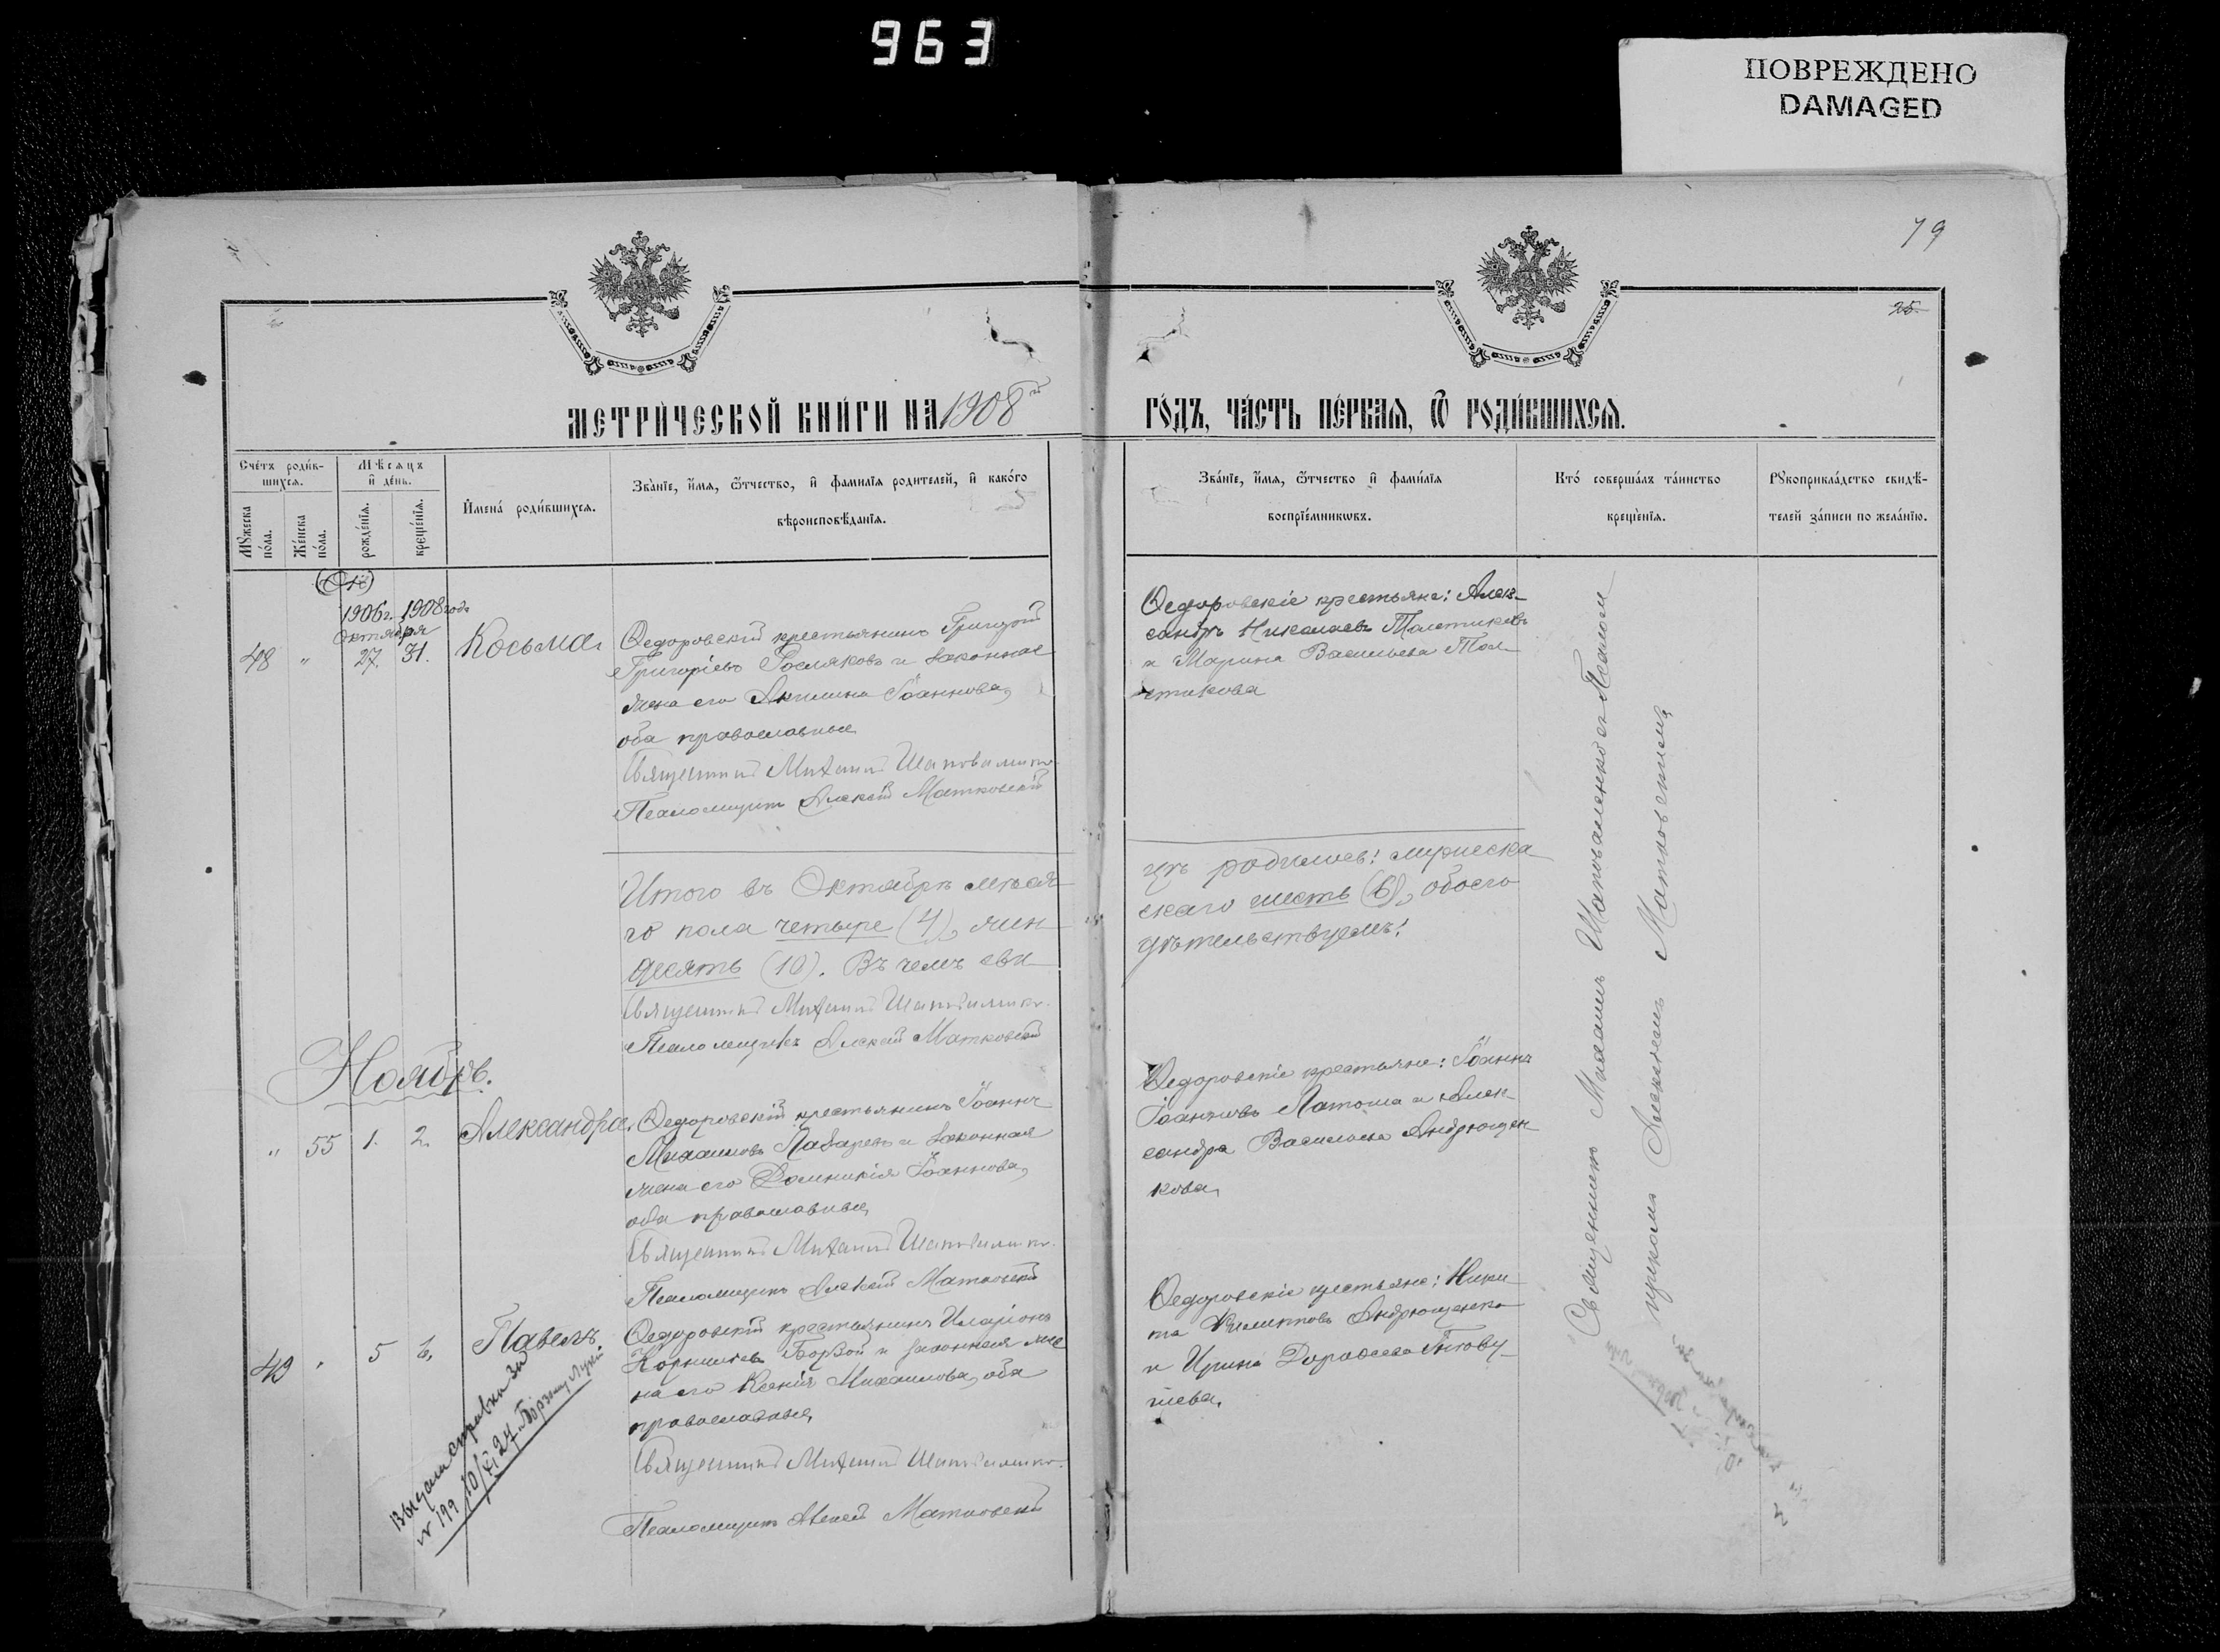 963
ПОВРЕЖДЕНО
DAMAGED
79
25
МЕТРИ́ЧЕСКОЙ КНИ́ГИ НА 1908й
ГО́ДЪ, ЧА́СТЬ ПЕ́РВАЯ, Ѿ РОДИ́ВШИХСЯ.
Сче́тъ роди́в-
шихся.
Мѣ́сяцъ
и҆ де́нь.
Мꙋжеска
по́ла.
Же́нска
по́ла.
рожде́нїя.
креще́нїя.
И҆мена́ роди́вшихся.
Зва́нїе, и҆́мя, ѻ҆́тчество, и҆ фамилїя родителей, и҆ како́го
вѣроисповѣ́данїя.
Зва́нїе, и҆́мя, ѻ҆́тчество и҆ фами́лїя
воспрїе́мникѡвъ.
Кто́ соверша́лъ та́инство
креще́нїя.
Рꙋкоприкла́дство свидѣ́-
телей за́писи по жела́нїю.
1906г. 1908 года
Октября
48 " 27. 31. Косьма.
Ѳедоровскій крестьянинъ Григорій
Григоріевъ Росляковъ и законная
жена его Акилина Іоаннова,
оба православные
Священникъ Михаилъ Шаповаленко.
Псаломщикъ Алексій Матковскій
Ѳедоровскіе крестьяне: Алек-
сандръ Николаевъ Толстиковъ
и Марина Васильева Тол-
стикова
Итого въ Октябрѣ меся-
цѣ родилось: мужеска
го пола четыре (4), жен-
скаго шесть (6), обоего
десять (10). Въ чемъ сви-
дѣтельствуемъ:
Священникъ Михаилъ Шаповаленко.
Псаломщикъ Алексій Матковскій
Ноябрь.
" 55 1. 2. Александра.
Ѳедоровскій крестьянинъ Іоаннъ
Михаиловъ Лабарень и законная
жена его Домникія Іоаннова,
оба православные
Священникъ Михаилъ Шаповаленко.
Псаломщикъ Алексій Матковскій
Ѳедоровскіе крестьяне: Іоаннъ
Іоанновъ Латоша и Алек-
сандра Васильева Андрющен-
кова,
49 " 5 6. Павелъ
Ѳедоровскій крестьянинъ Иларіонъ
Корнильевъ Борзой и законная же-
на его Ксенія Михаилова, оба
православные
Священникъ Михаилъ Шаповаленко.
Псаломщикъ Алексей Матковскій
Ѳедоровскіе крестьяне: Ники-
та Филипповъ Андрющенко
и Ирина Дороѳеева
Выдана справка за
№ 199 10/XI 24 Борзому Луки
Священникъ Михаилъ Шаповаленко съ Псалом
щикомъ Алексіемъ Матковскимъ